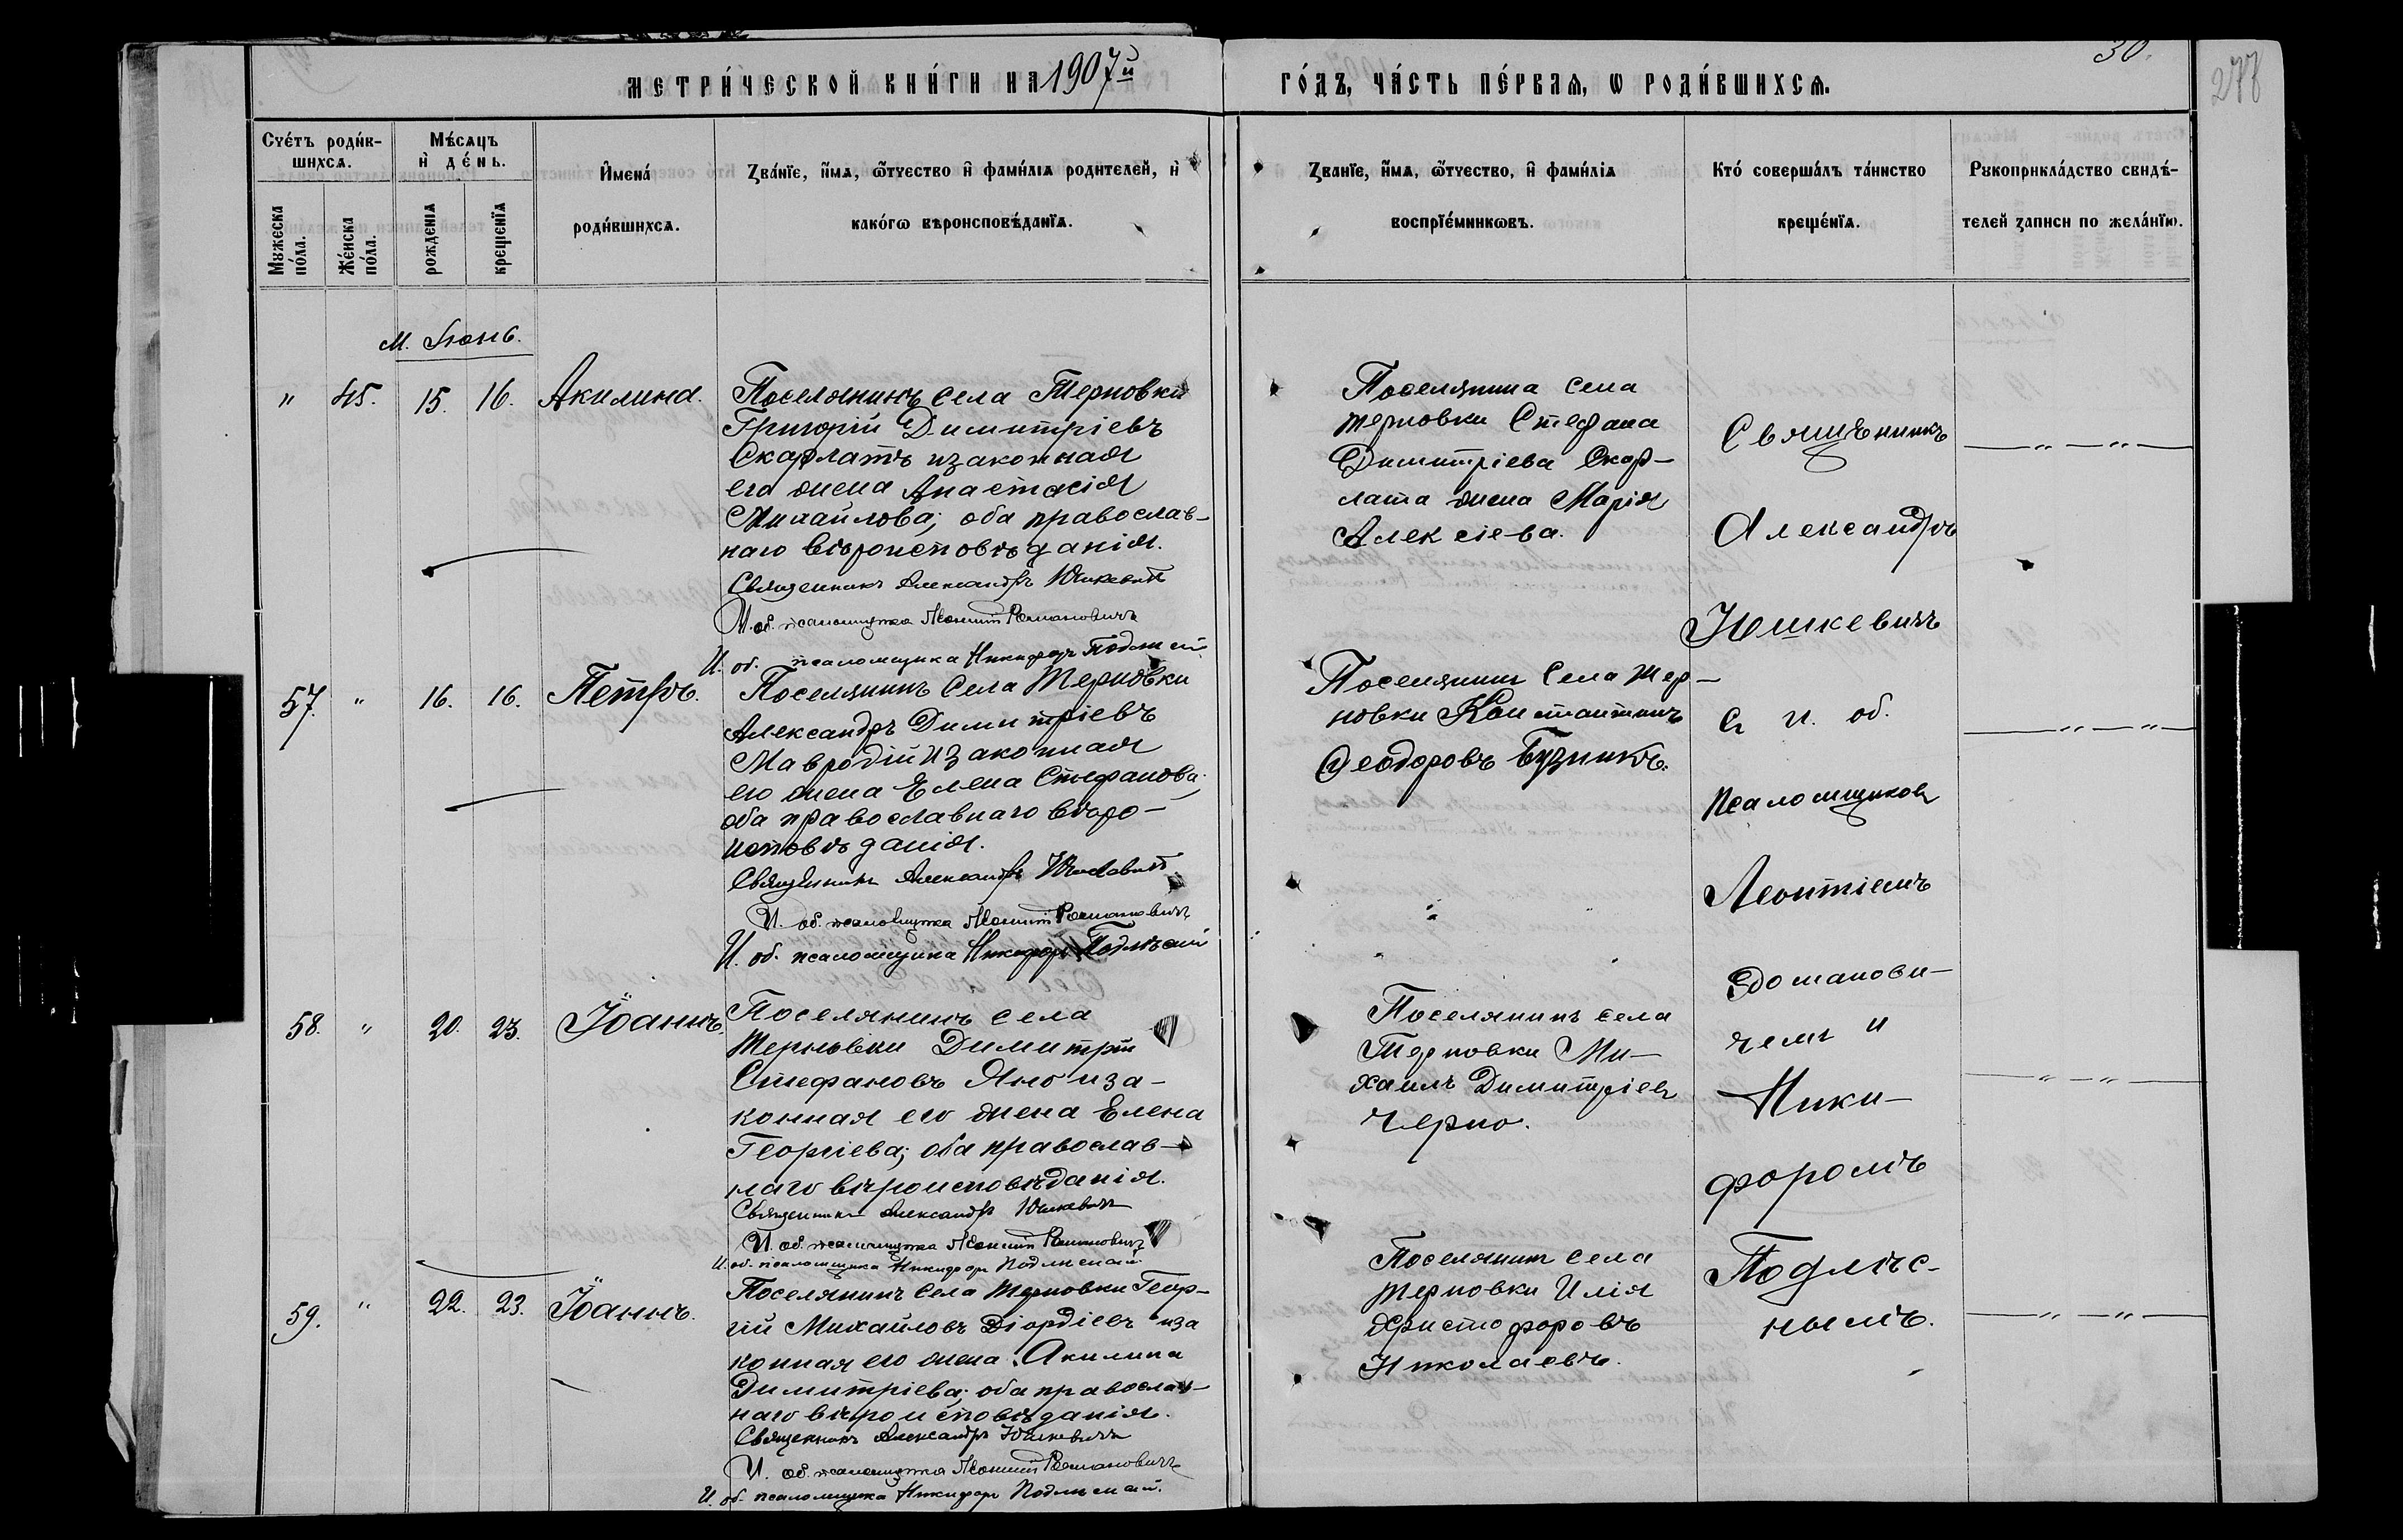 МЕТРИ́ЧЕСКОЙ КНИ́ГИ НА 1907й
ГО́ДЪ, ЧА́СТЬ ПЕ́РВАѦ, Ѡ РОДИ́ВШИХСѦ.
30.
277
Сче́тъ роди́в-
шихсѧ.
Мѣ́сѧцъ
и҆ де́нь.
Мꙋжеска
по́ла.
Же́нска
по́ла.
рожденїѧ
крещенїѧ
И҆мена́
роди́вшихсѧ.
Зва́нїе, и҆́мѧ, ѻ҆́тчество и҆ фами́лїѧ родителей, и҆
како́гѡ вѣроисповѣ́данїѧ.
Зва́нїе, и҆́мѧ, ѻ҆́тчество, и҆ фами́лїѧ
воспрїе́мниковъ.
Кто́ соверша́лъ та́инство
креще́нїѧ.
Рꙋкоприкла́дство свидѣ́-
телей записи по жела́нїю.
М. Іюнь.
" 45. 15. 16. Акилина.
Поселянинъ села Терновки
Григорій Димитріевъ
Скарлатъ изаконная
его жена Анастасія
Михайлова; оба православ-
наго вѣроисповѣданія.
Священникъ Александръ Юшкевичъ
И. об. псаломщика Леонтій Романовичъ
И. об. псаломщика Никифоръ
Поселянина села
Терновки Стефана
Димитріева Скар-
лата жена Марія
Алексіева.
Священникъ
Александръ
Юшкевичъ
с и. об.
псаломщиковъ
Леонтіемъ
Доманови-
чемъ и
Ники-
форомъ
Подлѣс-
нымъ.
— " — " —
57. " 16. 16. Петръ.
Поселянинъ села Терновки
Александръ Димитріевъ
Мавродій изаконная
его жена Елена Стефанова;
оба православнаго вѣро-
исповѣданія.
Священникъ Александръ Юшкевичъ
И. об. псаломщика Леонтій Романовичъ
И. об. псаломщика Никифоръ Подлѣсный
Поселянинъ села Тер-
новки Константинъ
Ѳеодоровъ Бузникъ.
— " — " —
58. " 20. 23. Іоаннъ.
Поселянинъ села
Терновки Димитрій
Стефановъ Яно иза-
конная его жена Елена
Георгіева; оба православ-
наго вѣроисповѣданія.
Священникъ Александръ Юшкевичъ
И. об. псаломщика Леонтій Романовичъ
И. об. псаломщика Никифоръ Подлѣсный
Поселянинъ села
Терновки Ми-
хаилъ Димитріевъ
Черно.
— " — " —
59. " 22. 23. Іоаннъ.
Поселянинъ села Терновки Геор-
гій Михайловъ Діордіевъ иза
конная его жена Акилина
Димитріева; оба православ-
наго вѣроисповѣданія.
Священникъ Александръ Юшкевичъ
И. об. псаломщика Леонтій Романовичъ
И. об. псаломщика Никифоръ Подлѣсный.
Поселянинъ села
Терновки Илія
Христофоровъ
Николаевъ.
— " — " —